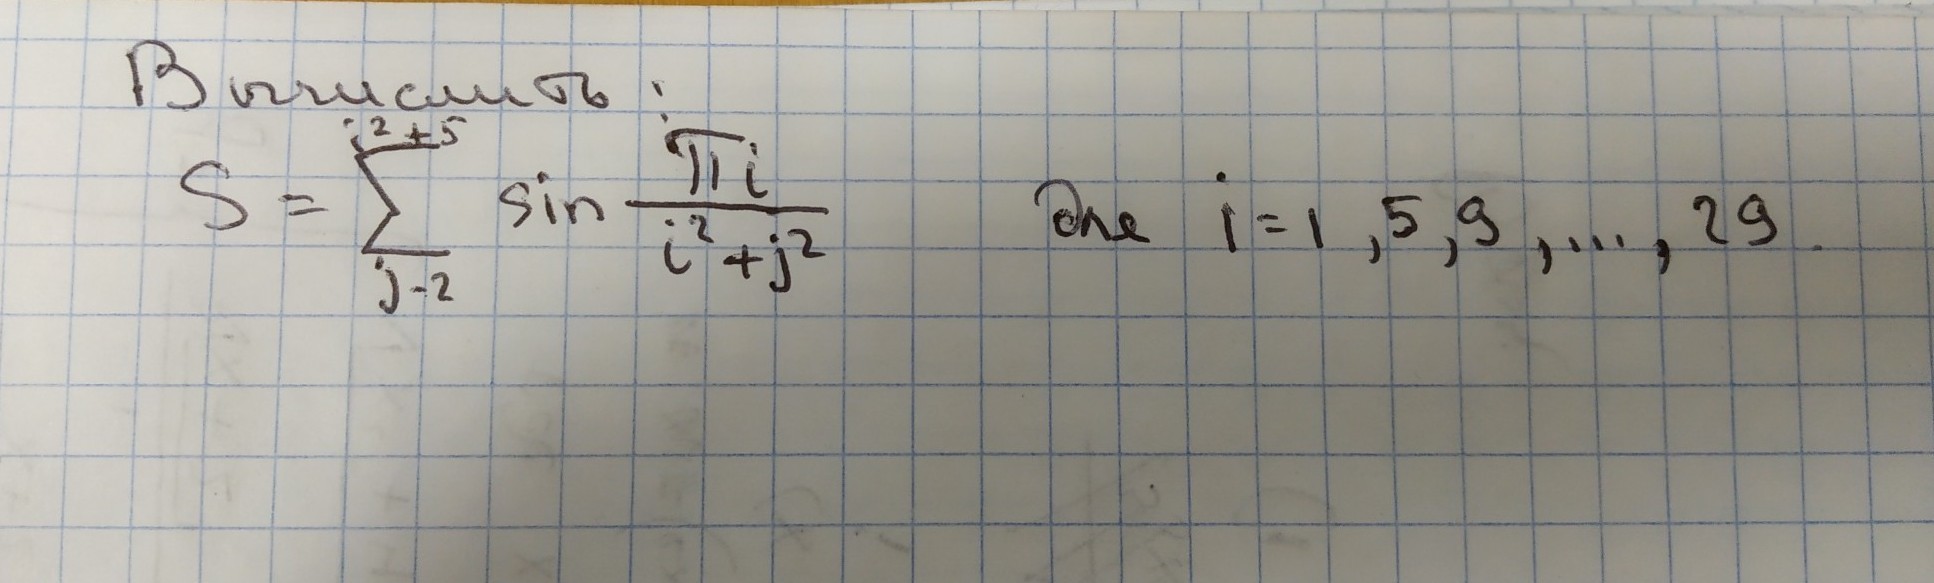 Вычислить:
S = \sum_{j=2}^{i^2+5} \sin \frac{\pi i}{i^2+j^2} для i=1,5,9,...,29.